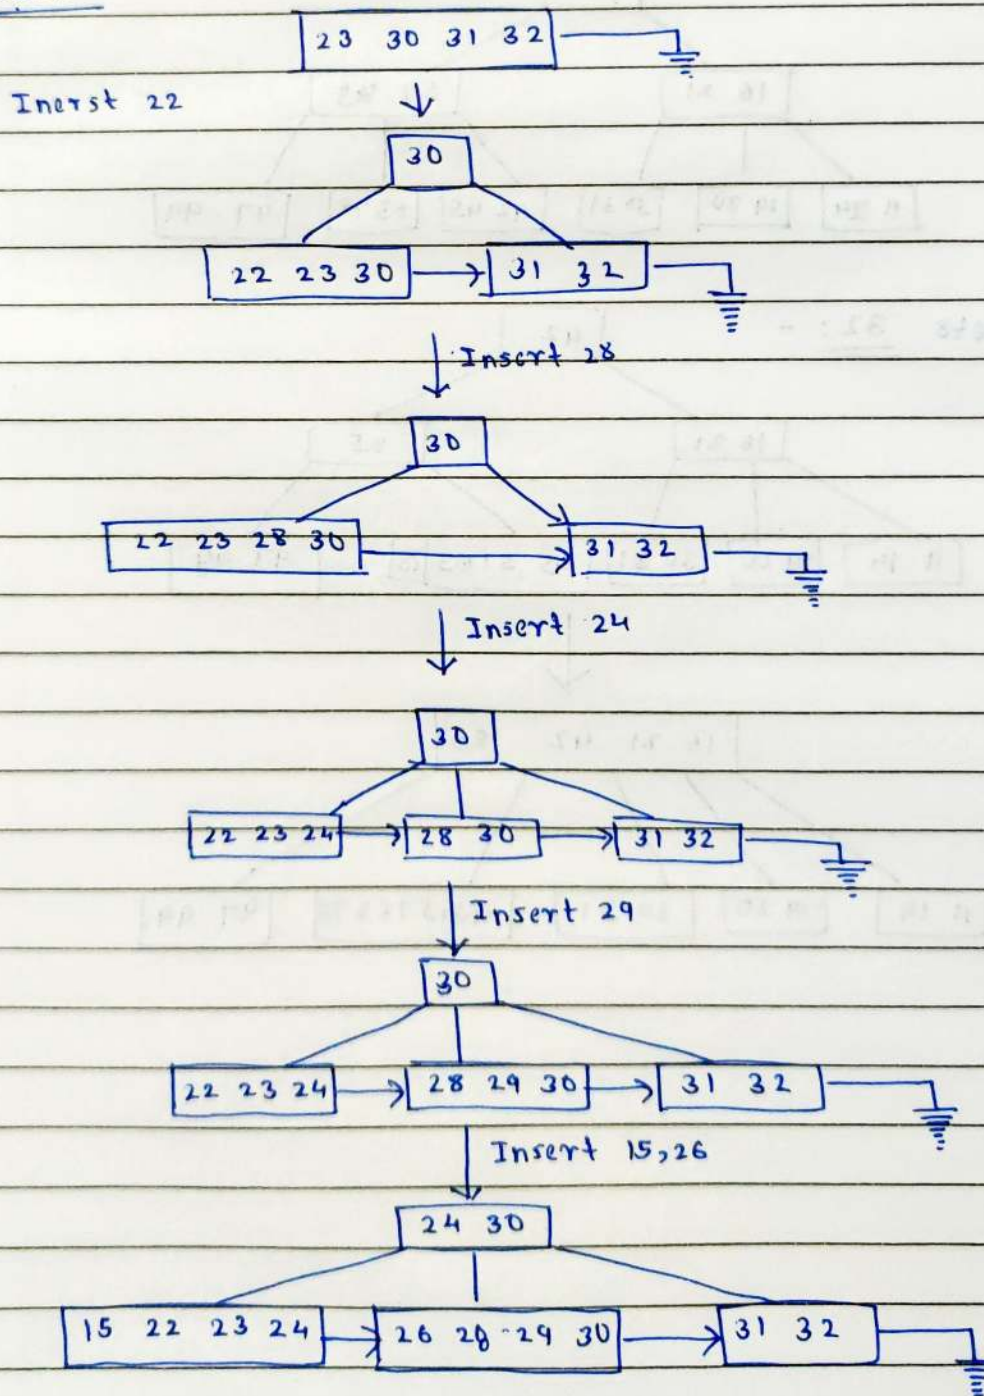 23 30 31 32
Inerst 22
30
22 23 30 31 32
Insert 28
30
22 23 28 30 31 32
Insert 24
30
22 23 24 28 30 31 32
Insert 29
30
22 23 24 28 29 30 31 32
Insert 15,26
24 30
15 22 23 24 26 28 29 30 31 32